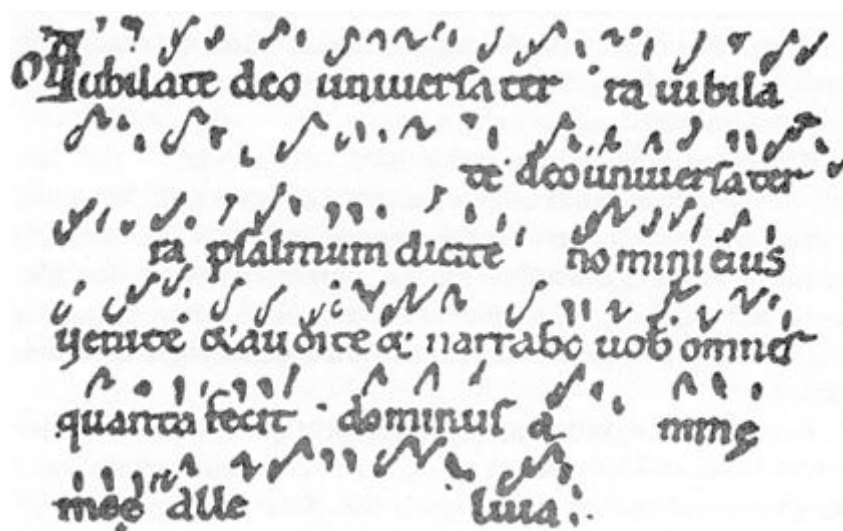 Of Iubilate deo uniuersa ter ra iubila
te deo uniuersa ter
ra psalmum dicite nomini eius
uenite & audite & narrabo uob omnes
quanta fecit dominus a mme
meę alle luia.